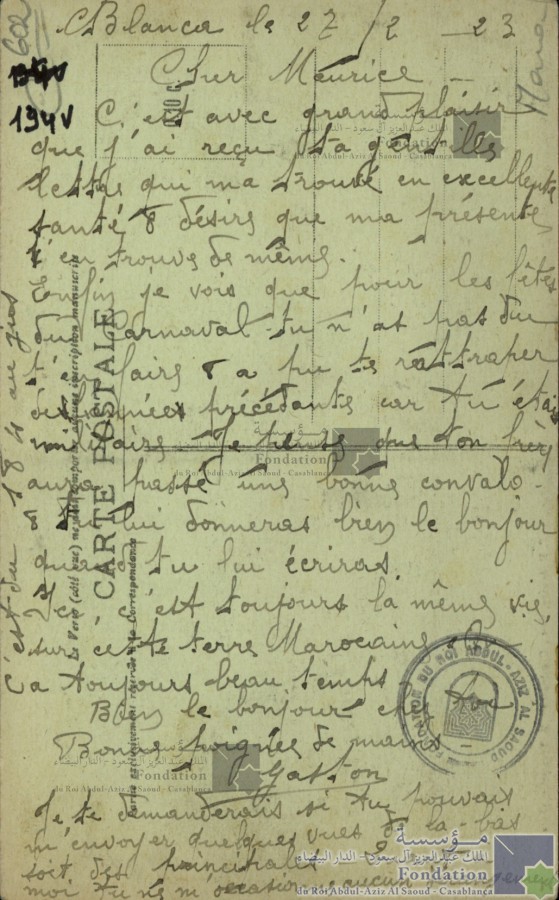 CBlanca le 27/2 - 23
Cher Maurice -
C'est avec grand plaisir
que j'ai reçu ta gentille
lettre qui m'a trouvé en excellente
santé & désire que ma présente
t'en trouve de même.
Enfin je vois que pour les fêtes
du Carnaval tu n'as pas du
t'en faire & a pu te rattraper
des années précédantes car tu étais
militaire. Je pense que ton frère
aura passé une bonne convalo-
Tu lui donneras bien le bonjour
quand tu lui écriras.
Ici c'est toujours la même vie,
sur cette terre Marocaine.
Ca toujours beau temps
Bien le bonjour chez toi
Bonne poignée de mains -
Gaston
Je te demanderais si tu pouvais
m'envoyer quelques vues de la-bas
soit des principales
moi tu ne m'occasionne aucun
c'est du 18 4 au jus
602
1947
Maroc
CARTE POSTALE
Le Verso (côté vue) ne doit comporter aucune inscription manuscrite
Partie exclusivement réservée à la Correspondance
FONDATION DU ROI ABDUL-AZIZ AL SAOUD
مؤسسة
الملك عبد العزيز آل سعود - الدار البيضاء
Fondation
du Roi Abdul-Aziz Al Saoud - Casablanca